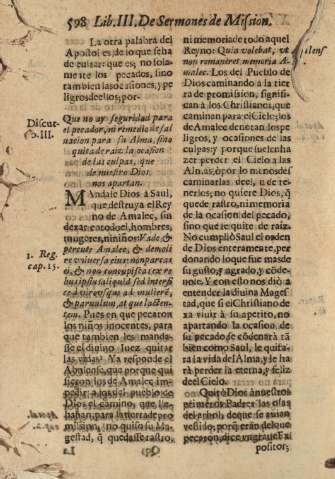 598 Lib. III. De Sermones de Mission.
La otra palabra del
Apostol es, de lo que se ha
de euitar: que es, no sola-
mente los pecados, sino
tambien las ocasiones, y pe
ligros de ellos; por-
Discur-
so. III.
Que no ay seguridad para
el pecador, ni remedio de sal
uacion para su Alma, sino
quita de raiz la ocasion
de las culpas, que
de nuestro Dios
nos apartan.
MAndale Dios à Saul,
que destruya el Rey
no de Amalec, sin
dexar en todo el, hombres,
mugeres, ni niños: Vade, &
percute Amalec, & demoli-
re vniuersa eius: non parcas
ei, & non concupiscas ex re-
bus ipsius aliquid sed interfi-
ce à viro vsque ad mulierē,
& paruulum, at que lacten-
tem. Pues en que pecaron
los niños inocentes, para
que tambien les manda-
se el diuino Iuez quitar
las vidas? Ya responde el
Abulense, que porque qui
sieron los de Amalec impe-
dir à aquel pueblo de
Dios el camino, que lle-
uaban, para la tierra de pro
mission; no quiso su Ma-
gestad, q̃ quedasse rastro,
1. Reg.
cap. 15.
ni memoria de todo aquel
Reyno: Quia volebat, vt
non remaneret memoria A-
malec. Los del Pueblo de
Dios caminando a la tier
ra de promission, signifi-
can à los Christianos, que
caminan para el Cielo; los
de Amalec denotan los pe
ligros, y ocasiones de las
culpas; y porque suelen ha
zer perder el Cielo a las
Almas, ò por lo menos de-
caminarlas:
querles; no quiere Dios, q̃
quede rastro, ni memoria
de la ocasion del pecado,
sino que se quite de raiz.
No cumpliò Saul el orden
de Dios enteramente, per
donando lo que fue mas de
su gusto, y agrado,
Y con esso nos diò a
entender la diuina Magest
ad, que si el Christiano de-
xa viuir à su apetito, no
apartando la ocasion de
su pecado
bien como Saul, le quita-
ra la vida del Alma, y le ha
rà perder la eterna, y feliz
del Cielo.
Quitò Dios à nuestros
primeros Padres las ojas
del arbol, de que se auian
vestido; porq̃ eran del que
pecaron,
positor;
La